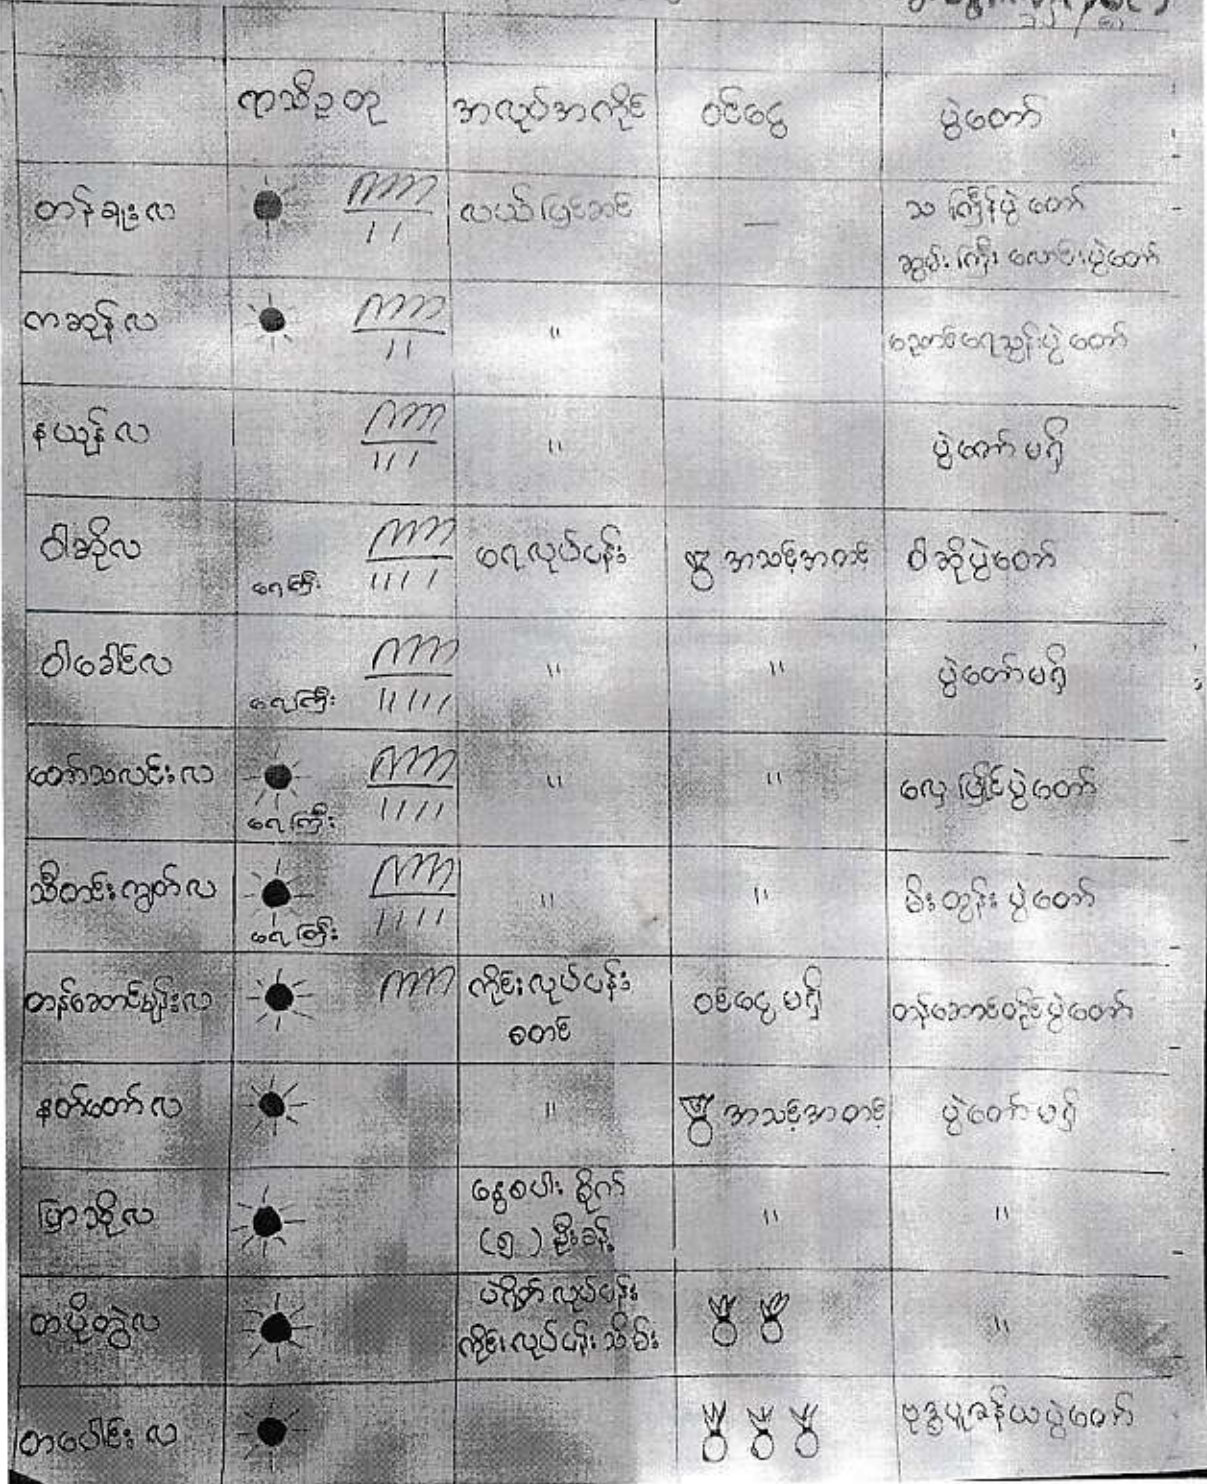 ရာသီဥတု အလုပ်အကိုင် ဝင်ငွေ ပွဲတော်
တန်ခူးလ လယ်ပြင်ဆင် — သင်္ကြန်ပွဲတော်
ဆွမ်းကြီးလောင်းပွဲတော်
ကဆုန်လ " ညောင်ရေသွန်းပွဲတော်
နယုန်လ " ပွဲတော်မရှိ
ဝါဆိုလ ရေကြီး ရေလုပ်ငန်း အသင့်အတင့် ဝါဆိုပွဲတော်
ဝါခေါင်လ ရေကြီး " " ပွဲတော်မရှိ
တော်သလင်းလ ရေကြီး " " လှေပြိုင်ပွဲတော်
သီတင်းကျွတ်လ ရေကြီး " " မီးထွန်းပွဲတော်
တန်ဆောင်မုန်းလ ကိုင်းလုပ်ငန်း ဝင်ငွေမရှိ တန်ဆောင်တိုင်ပွဲတော်
စတင်
နတ်တော်လ " အသင့်အတင့် ပွဲတော်မရှိ
ပြာသိုလ နွေစပါး စိုက် " "
(၅) ဦးခန့်
တပို့တွဲလ ပဲရိတ်လုပ်ငန်း "
ကိုင်းလုပ်ငန်းသိမ်း
တပေါင်းလ ဗုဒ္ဓပူဇနိယပွဲတော်